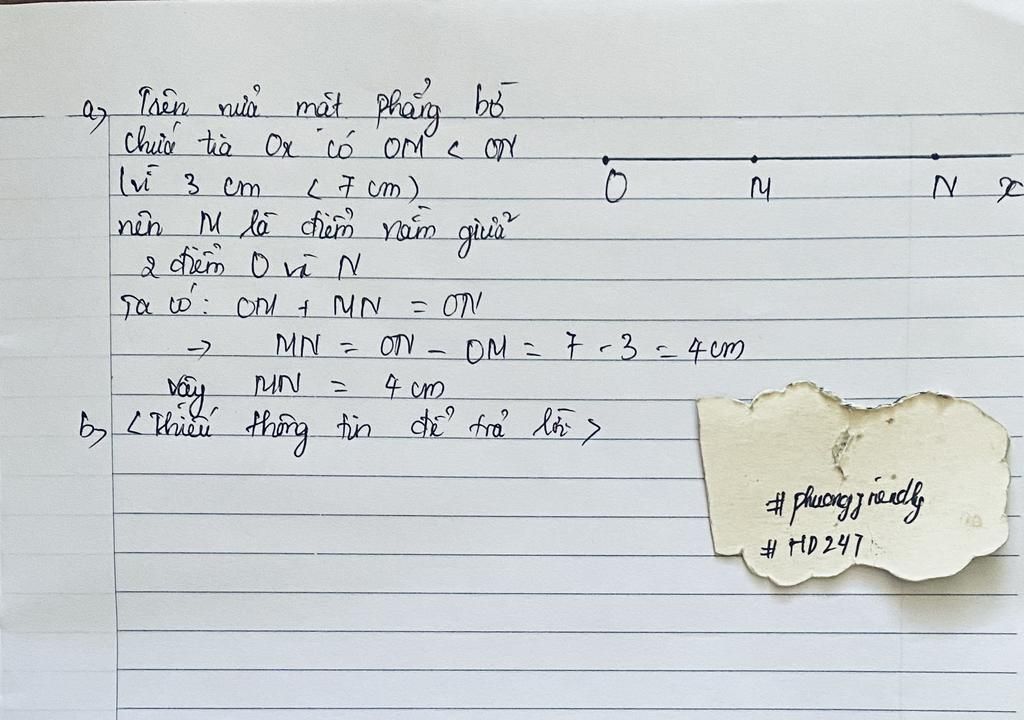 a) Trên nửa mặt phẳng bờ
chứa tia Ox có OM < ON
(vì 3 cm < 7 cm)
nên M là điểm nằm giữa
2 điểm O và N
Ta có: OM + MN = ON
→ MN = ON - OM = 7 - 3 = 4 cm
Vậy MN = 4 cm
b) <Thiếu thông tin để trả lời>
O M N x
#phuongfriendly
#HD247